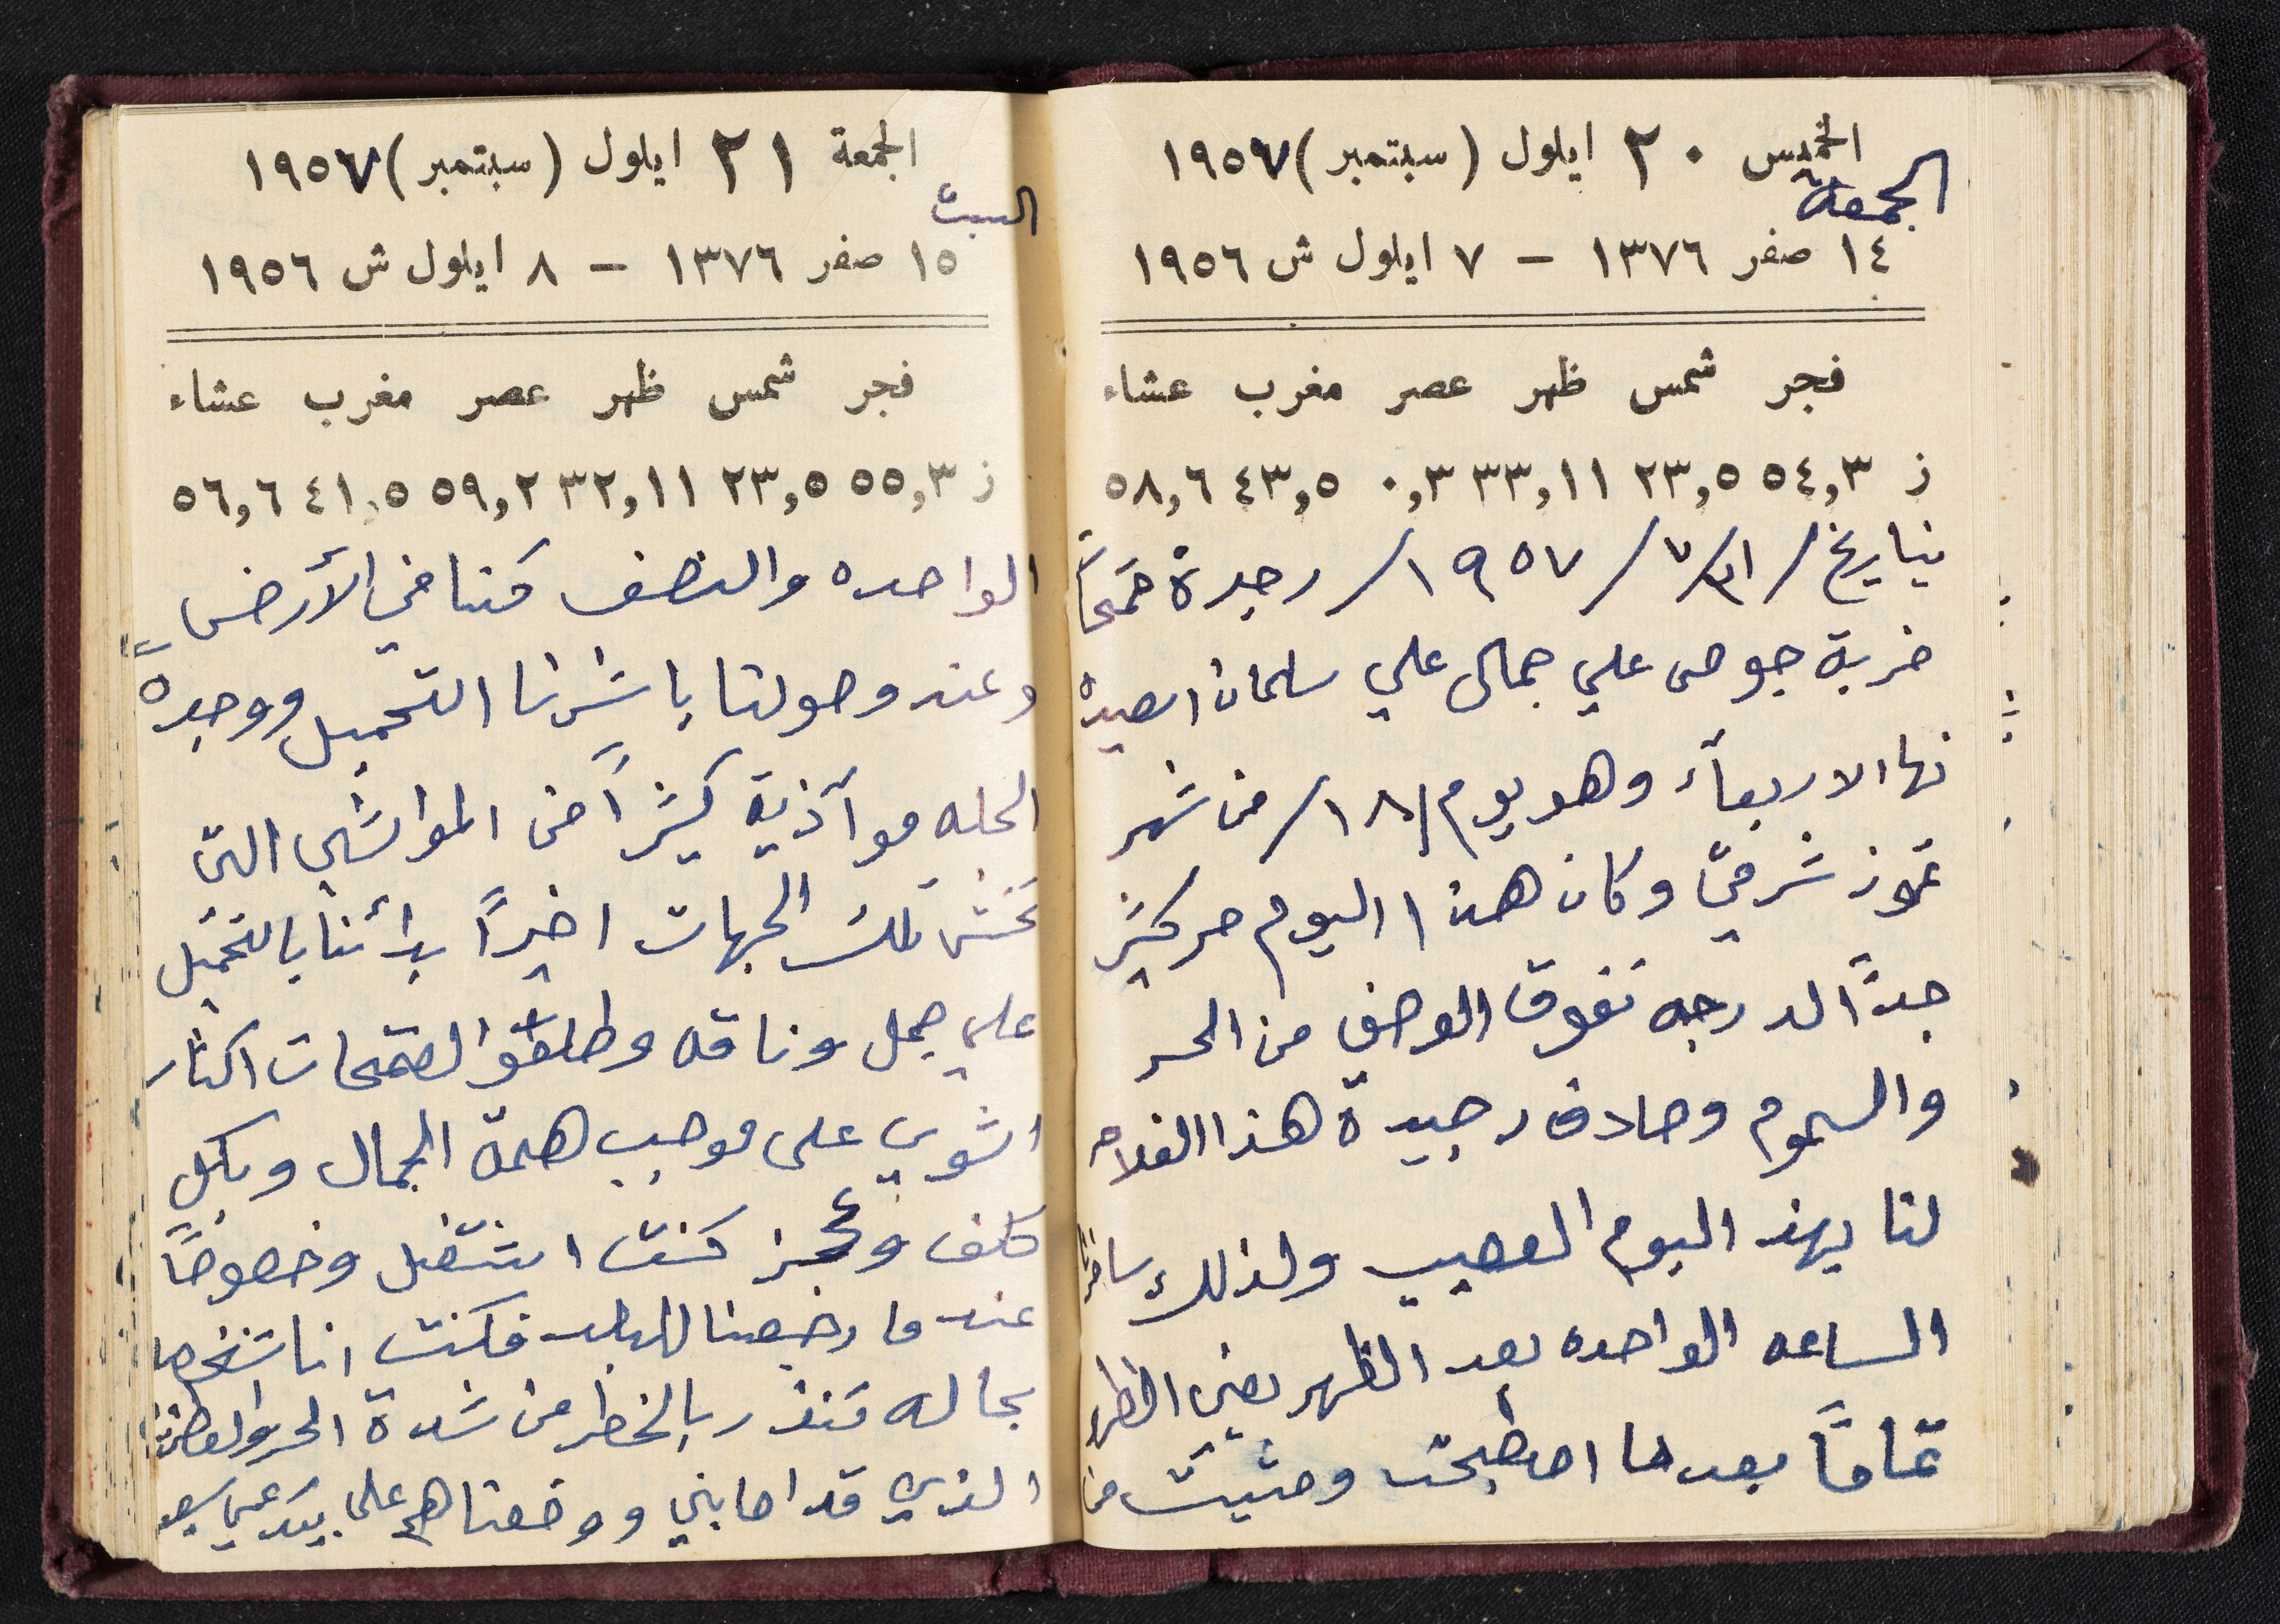 الخميس ٢٠ ايلول (سبتمبر) ١٩٥٧
الجمعة
١٤ صفر ١٣٧٦ – ٧ ايلول ش ١٩٥٦
فجر شمس ظهر عصر مغرب عشاء
ز ٥٤,٣ ٢٣,٥ ٣٣,١١ ٠,٣ ٤٣,٥ ٥٨,٦
بتاريخ / ٣١/ ٧/ ١٩٥٧/ رجدة قمحات
خربة جوحى علي جمال علي سلمان
نها الاربعآء وهو يوم /١٨/ من شهر
تموز شرقيّ وكان هذا اليوم حر كثير
جدًا لدرجه تفوق الوصف من الحر
والسموم وصادف رجيدة هذا الغلاه
لنا بهذ اليوم العصيب ولذلك سافرت
الساعه الواحده بعد الظهر يعني الظهر
تمامًا بعد ما اصطبحت ومشيت من
الجمعة ٢١ ايلول (سبتمبر) ١٩٥٧
السبت
١٥ صفر ١٣٧٦ – ٨ ايلول ش ١٩٥٦
فجر شمس ظهر عصر مغرب عشاء
ز ٥٥,٣ ٢٣,٥ ٣٢,١١ ٥٩,٢ ٤١,٥ ٥٦,٦
الواحده والنصف كنا في الأرض
وعند وصولنا باشرنا التحميل ووجدة
الحله موآذية كثيرًا من المواشي التي
تلك الجهات اخيرًا بدأنا بالتحميل
على جمل وناقه وطلعوا القمحات اكثار
اشوي على موجب همة الجمال وبكل
كلف وعجز كنت اشتغل وخصوصًا
عند ما رجعنا للبلد فكنت انا شخصيا
بحاله تنذر بالخطر من شدة الحر والعطش
الذي قد اصابني ووضعناهم على بيدر عمي سعيد